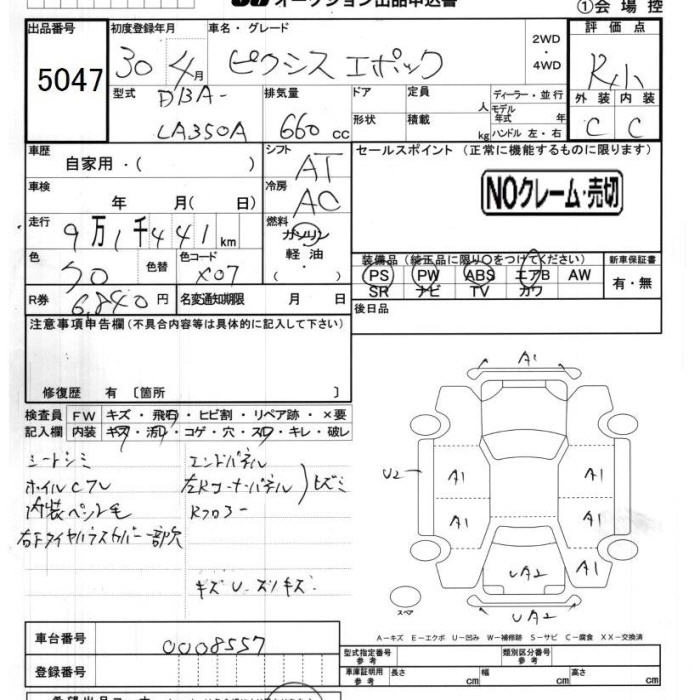 オークション出品申込書
①会場控
出品番号 初度登録年月 車名・グレード 評価点
5047 30年4月 ピクシス エポック 2WD・4WD
型式 DBA-LA350A 排気量 660cc ドア 定員 人 ディーラー・並行 外装 内装
形状 積載 kg モデル年式 年 ハンドル 左・右 C C
車歴 自家用・( ) シフト AT セールスポイント (正常に機能するものに限ります)
車検 年 月( 日) 冷房 AC NOクレーム・売切
走行 9万1千441km 燃料 ガソリン 軽油・( )
色 色替 色コード X07
装備品(純正品に限り○をつけてください) 新車保証書
PS PW ABS エアB AW 有・無
SR ナビ TV カワ
R券 6,840円 名変通知期限 月 日 後日品
注意事項申告欄(不具合内容等は具体的に記入して下さい)
修復歴 有 〔箇所 〕
検査員 FW キズ・飛石・ヒビ割・リペア跡・×要
記入欄 内装 キズ・汚れ・コゲ・穴・スレ・キレ・破レ
シートシミ エンドパネル
ホイルCフレ 左Rコーナーパネル ヒズミ
内装ペット毛 Rフロアー
右Fタイヤハウスカバー一部欠
キズ U・ズリキズ
A1
U2 A1 A1
A1 A1
UA2 A1
スペア UA2
A-キズ E-エクボ U-凹み W-補修跡 S-サビ C-腐食 XX-交換済
車台番号 0008557
登録番号
型式指定番号 参考 類別区分番号 参考
車庫証明用 参考 長さ cm 幅 cm 高さ cm